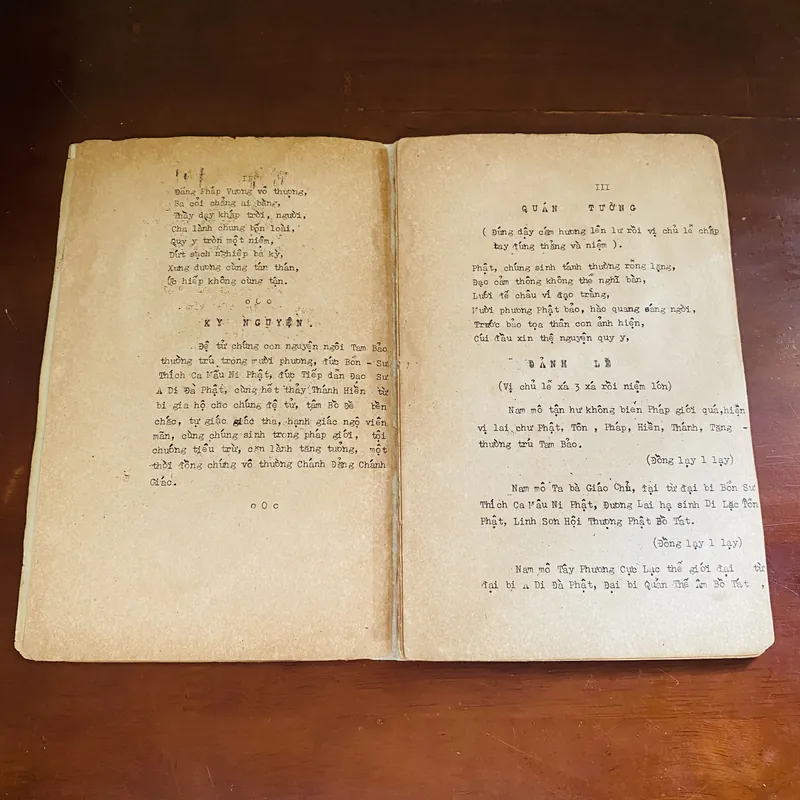 II
Đấng Pháp Vương vô thượng,
Ba cõi chẳng ai bằng,
Thầy dạy khắp trời, người,
Cha lành chung bốn loài,
Quy y tròn một niệm,
Dứt sạch nghiệp ba kỳ,
Xưng dương cùng tán thán,
Ức kiếp không cùng tận.
oOo
KỲ NGUYỆN.
Đệ tử chúng con nguyện ngôi Tam Bảo
thường trú trong mười phương, đức Bổn - Sư
Thích Ca Mâu Ni Phật, đức Tiếp dẫn Đạo Sư
A Di Đà Phật, cùng hết thảy Thánh Hiền từ
bi gia hộ cho chúng đệ tử, tâm Bồ Đề bền
chắc, tự giác giác tha, hạnh giác ngộ viên
mãn, cùng chúng sinh trong pháp giới, tội
chướng tiêu trừ, căn lành tăng tưởng, một
thời đồng chứng vô thường Chánh Đẳng Chánh
Giác.
oOo
III
QUÁN TƯỞNG
( Đứng dậy cắm hương lên lư rồi vị chủ lễ chắp
tay đứng thẳng và niệm ).
Phật, chúng sinh tánh thường rỗng lặng,
Đạo cảm thông không thể nghĩ bàn,
Lưới đế châu ví đạo tràng,
Mười phương Phật bảo, hào quang sáng ngời,
Trước bảo tọa thân con ảnh hiện,
Cúi đầu xin thệ nguyện quy y,
ĐẢNH LỄ
(Vị chủ lễ xá 3 xá rồi niệm lớn)
Nam mô tận hư không biến Pháp giới quá,hiện
vị lai chư Phật, Tôn , Pháp, Hiền, Thánh, Tăng -
thường trú Tam Bảo.
(Đồng lạy 1 lạy)
Nam mô Ta bà Giáo Chủ, đại từ đại bi Bổn Sư
Thích Ca Mâu Ni Phật, Đương Lai hạ sinh Di Lặc Tôn
Phật, Linh Sơn Hội Thượng Phật Bồ Tát.
(Đồng lạy 1 lạy)
Nam mô Tây Phương Cực Lạc thế giới đại từ
đại bi A Di Đà Phật, Đại bi Quán Thế Âm Bồ Tát ,